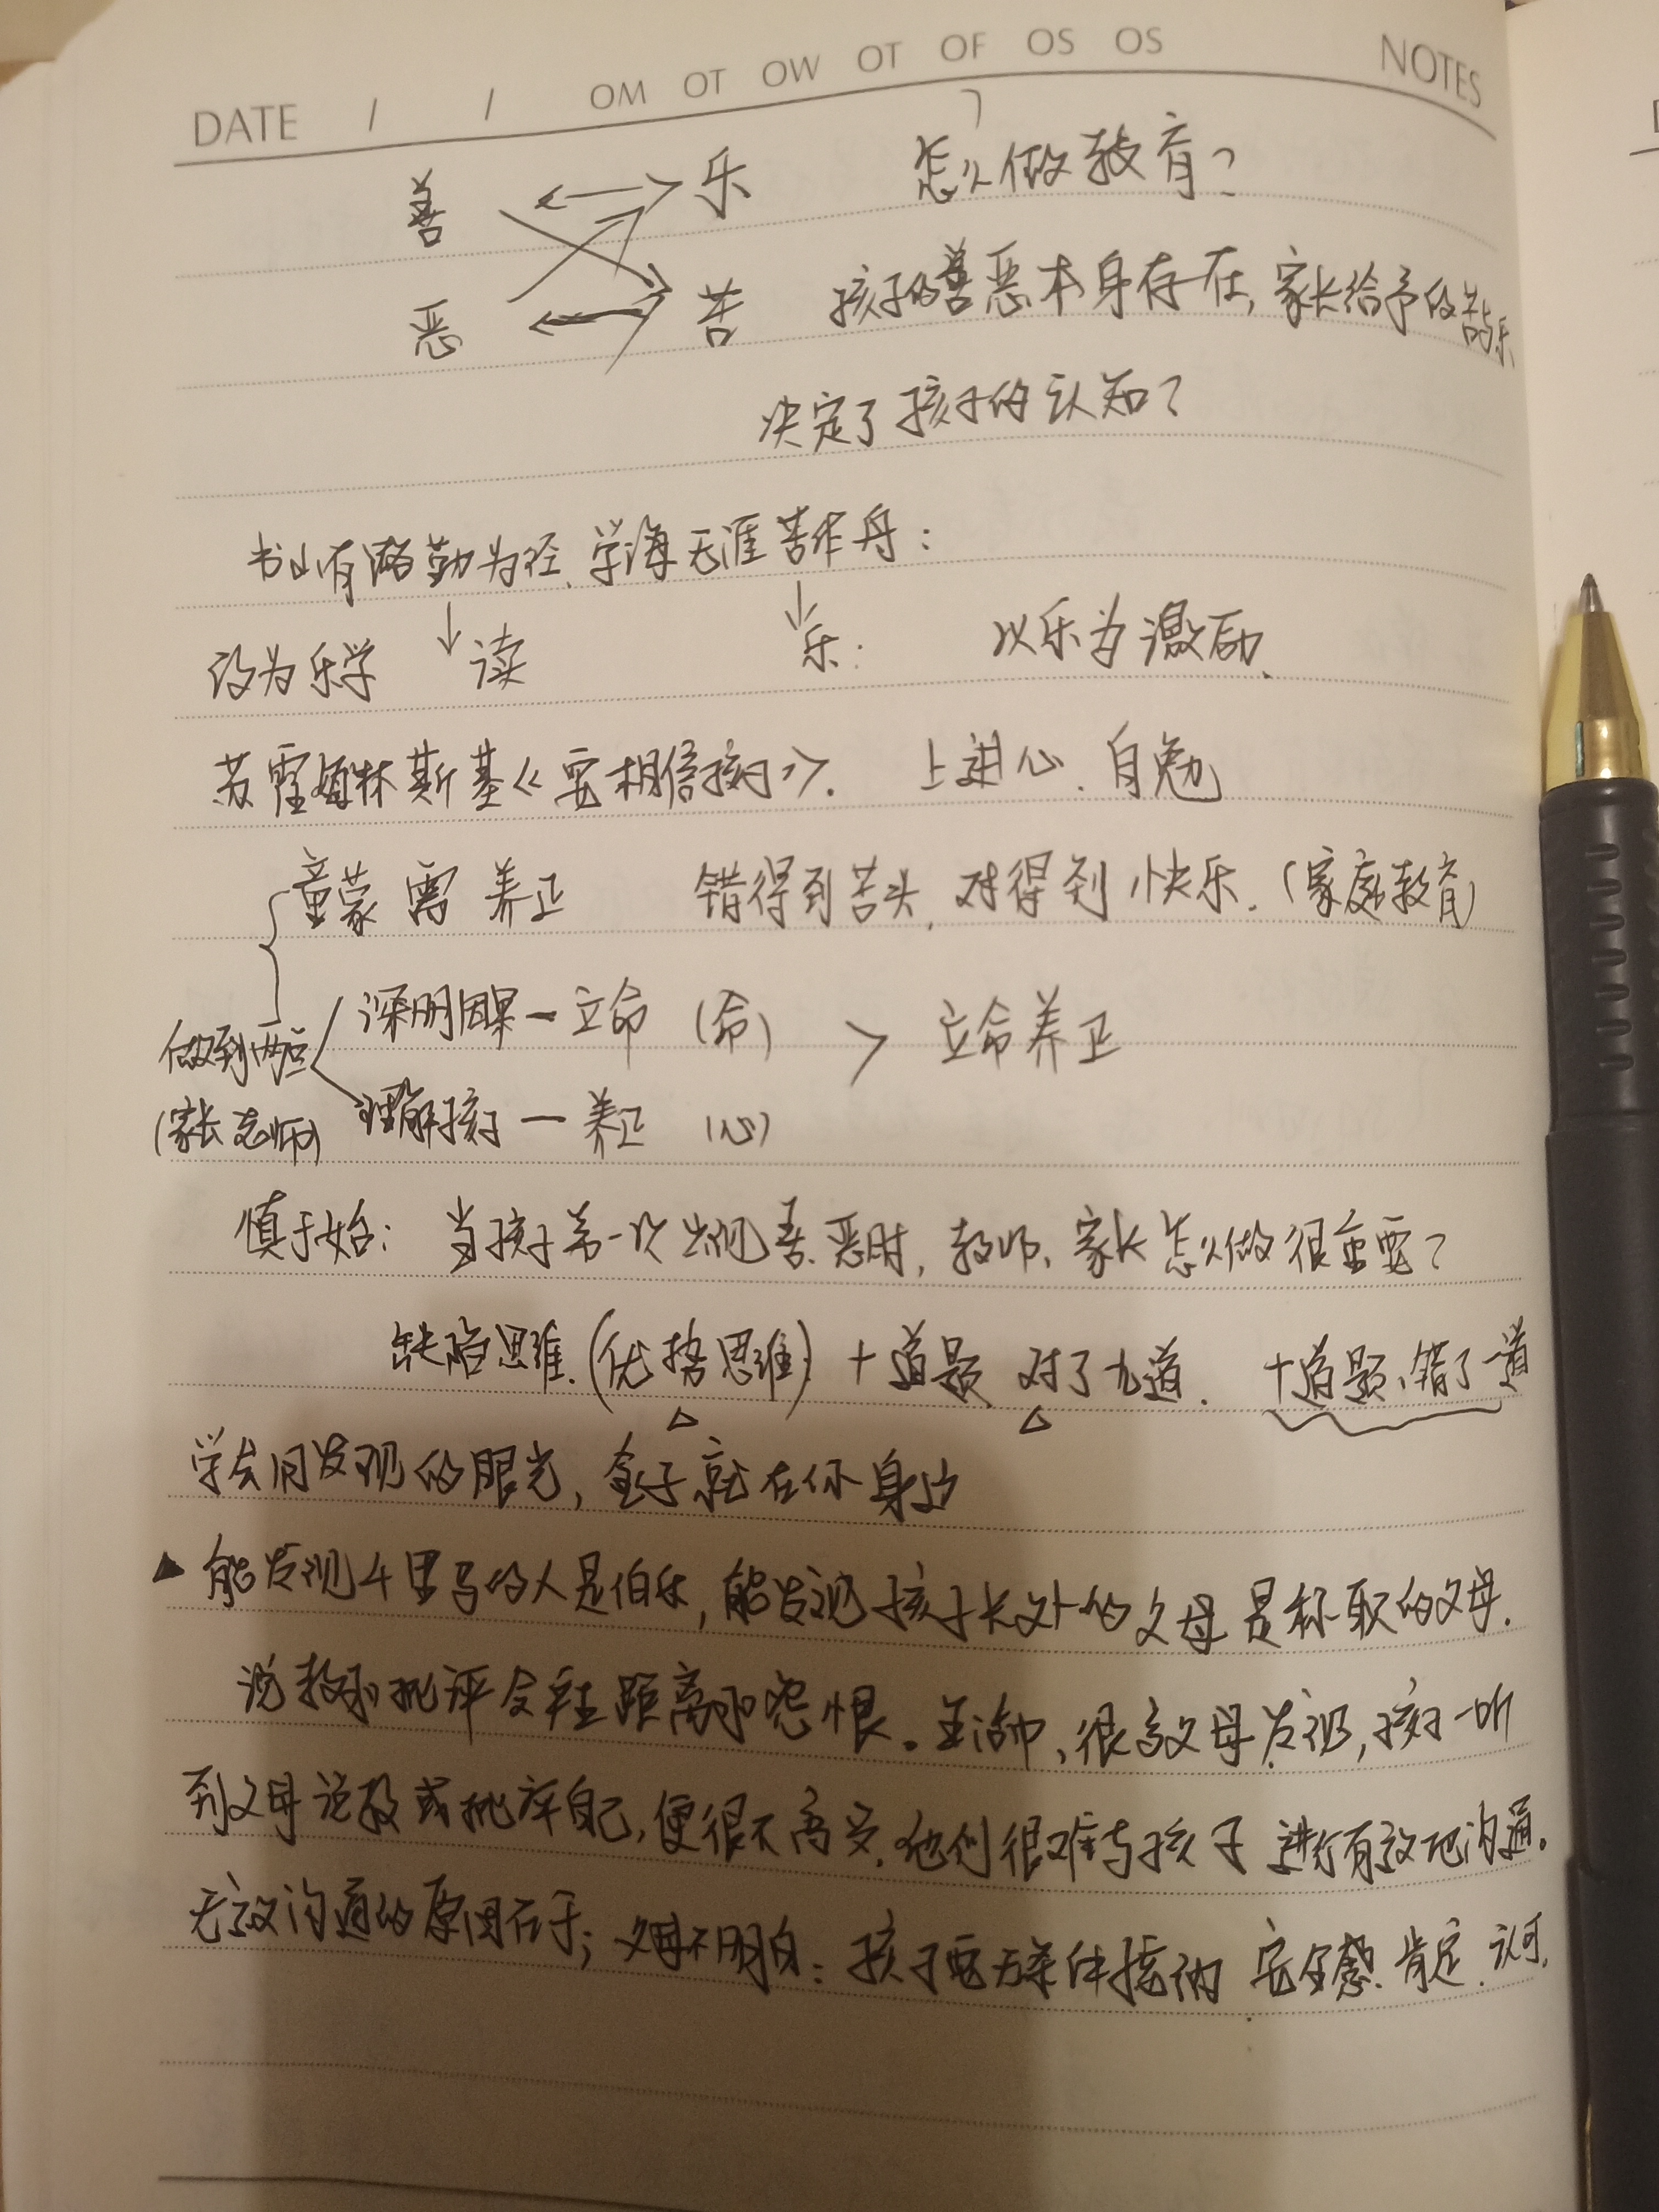 DATE / / OM OT OW OT OF OS OS NOTES
善 乐 怎么做教育?
恶 苦 孩子的善恶本身存在,家长给予的苦乐
决定了孩子的认知?
书山有路勤为径、学海无涯苦作舟:
设为乐学 读 乐: 以乐为激励、
苏霍姆林斯基《要相信孩子》. 上进心、自勉
童蒙需养正 错得到苦头、对得到快乐.(家庭教育)
深明因果—立命 (命) > 立命养正
做到两点
(家长老师) 理解孩子—养正 (心)
慎于始: 当孩子第一次出现善、恶时, 教师、家长怎么做很重要?
缺陷思维.(优势思维) 十道题 对了九道. 十道题、错了一道
学会用发现的眼光, 金子就在你身边
能发现千里马的人是伯乐, 能发现孩子长处的父母是称职的父母.
说教和批评会产生距离和怨恨。生活中、很多父母发现, 孩子一听
到父母说教或批评自己, 便很不高兴. 他们很难与孩子进行有效地沟通。
无效沟通的原因在于; 父母不明白: 孩子要无条件接纳 安全感. 肯定. 认可.